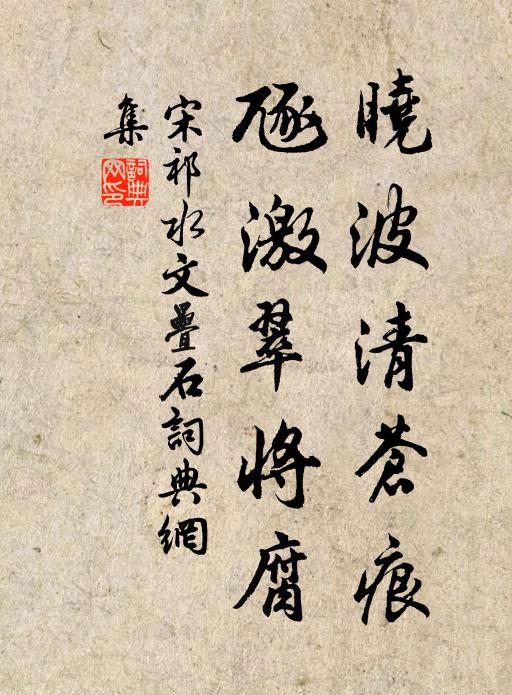 曉波清蒼痕
豗激翠將腐
宋祁水文疊石詞典網
集
詞典
网印